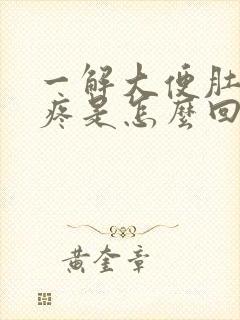 一解大便肚
疼是怎麼回
黄奎章